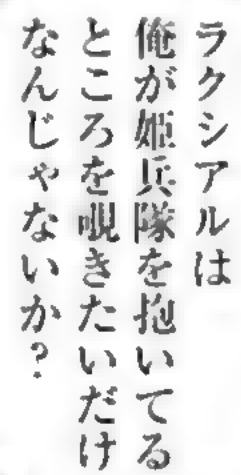 ラクシアルは
俺が姫兵隊を抱いてる
ところを覗きたいだけ
なんじゃないか?